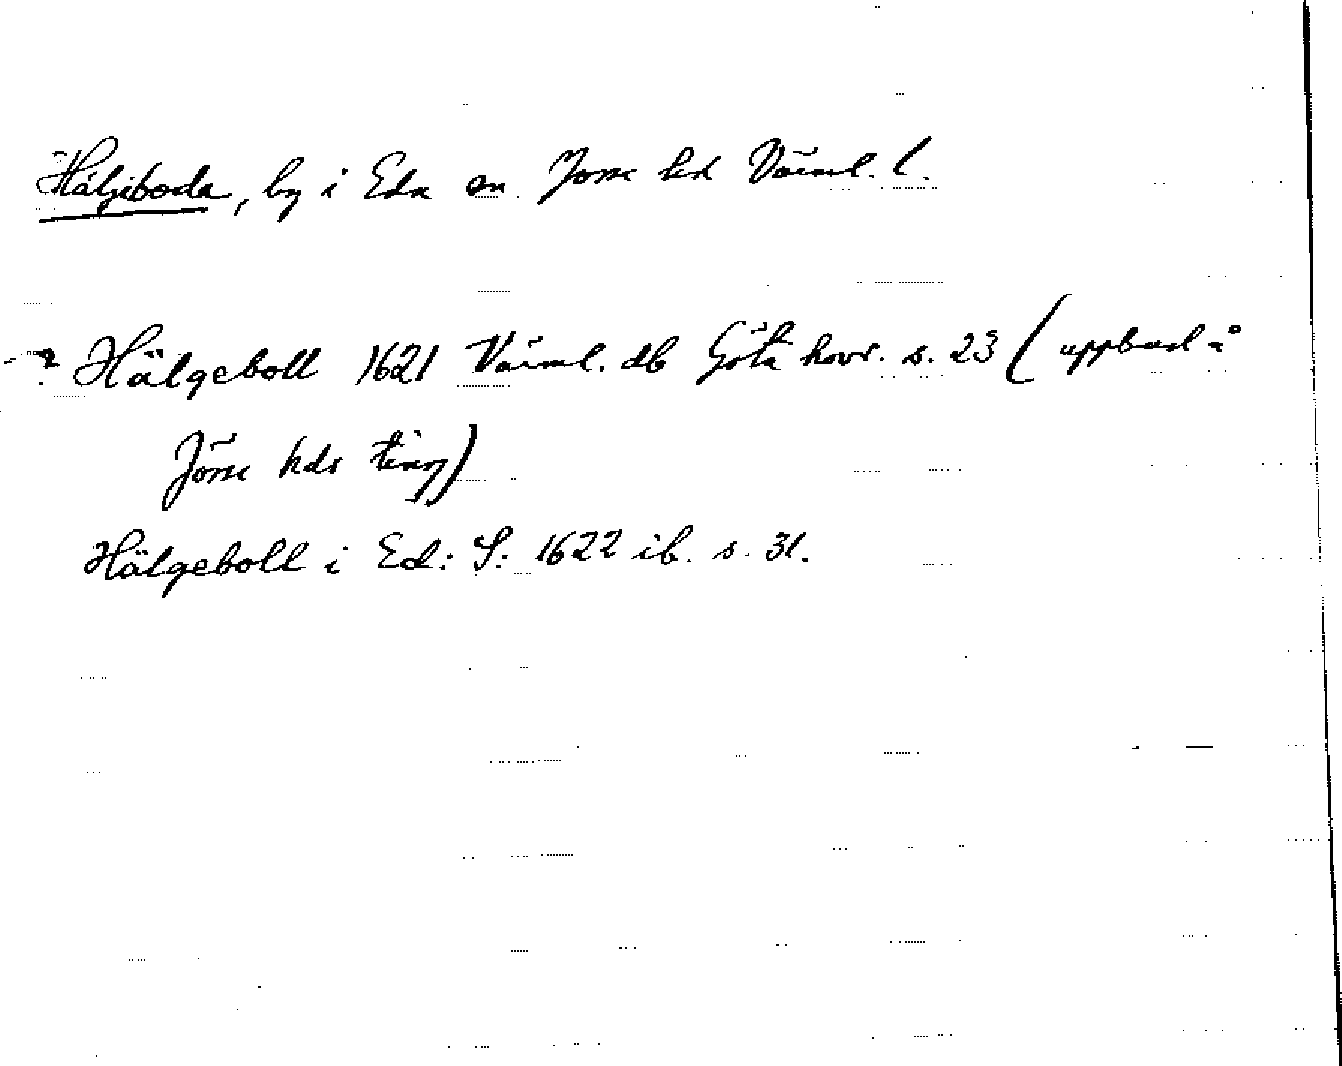 Häljeboda, by i Eda sn Jösse hd Värml. l.
? Hälgeboll 1621 Värml. db Göta hovr. s. 23 (uppbud å
Jösse hds ting)
Hälgeboll i Ed: S: 1622 ib. s. 31.